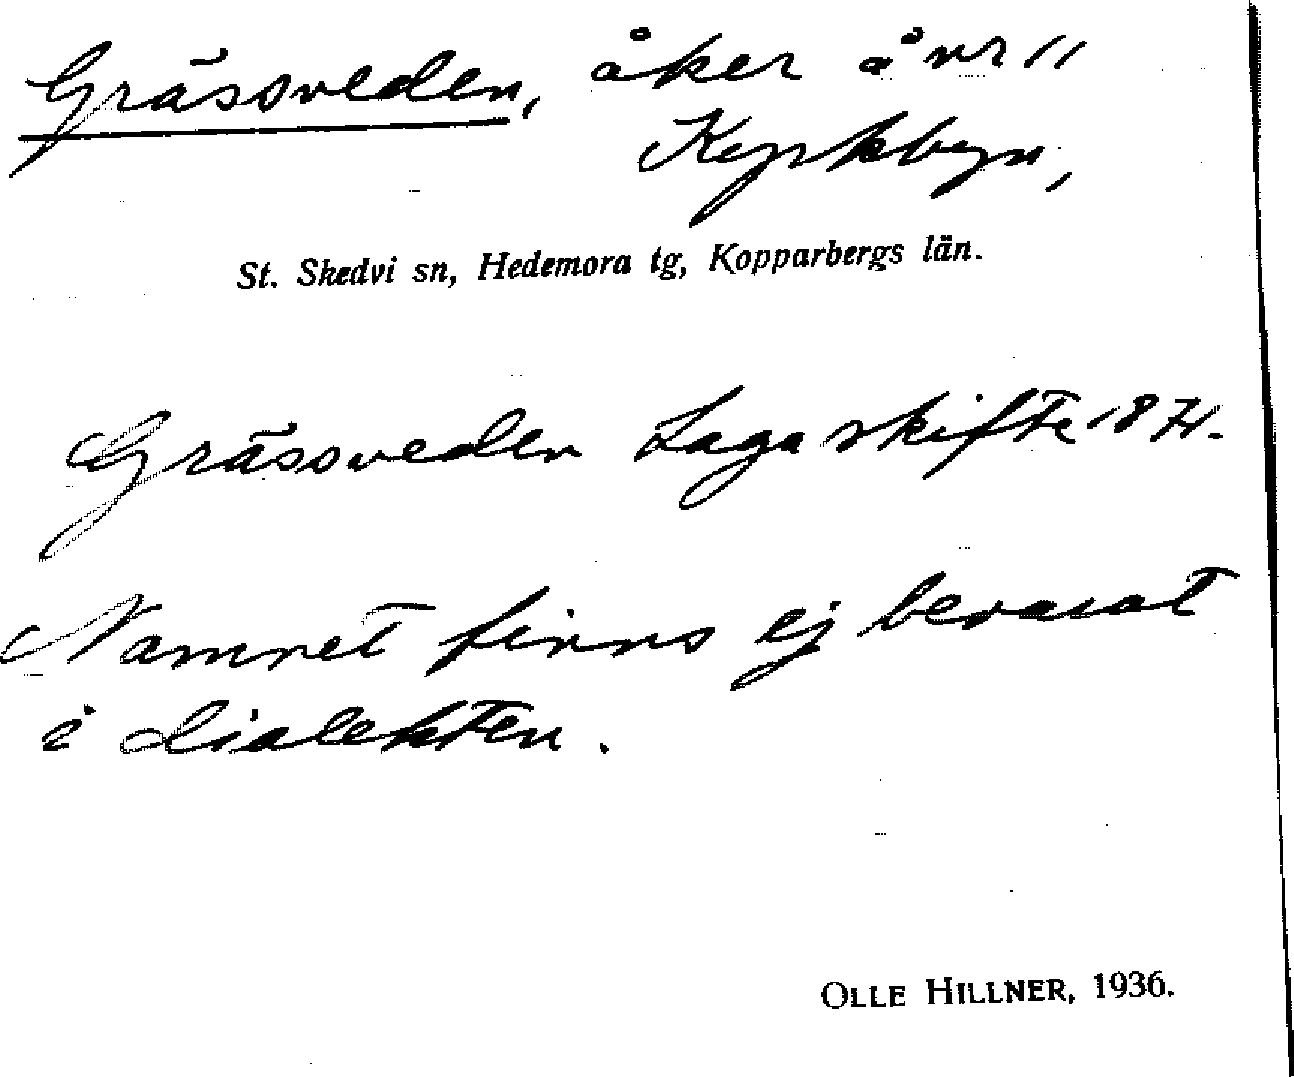 Grässveden, åker å nr 11
Kyrkbyn,
St. Skedvi sn, Hedemora tg, Kopparbergs län.
Grässveden Laga skifte 1871.
Namnet finns ej bevarat
i dialekten.
OLLE HILLNER, 1936.